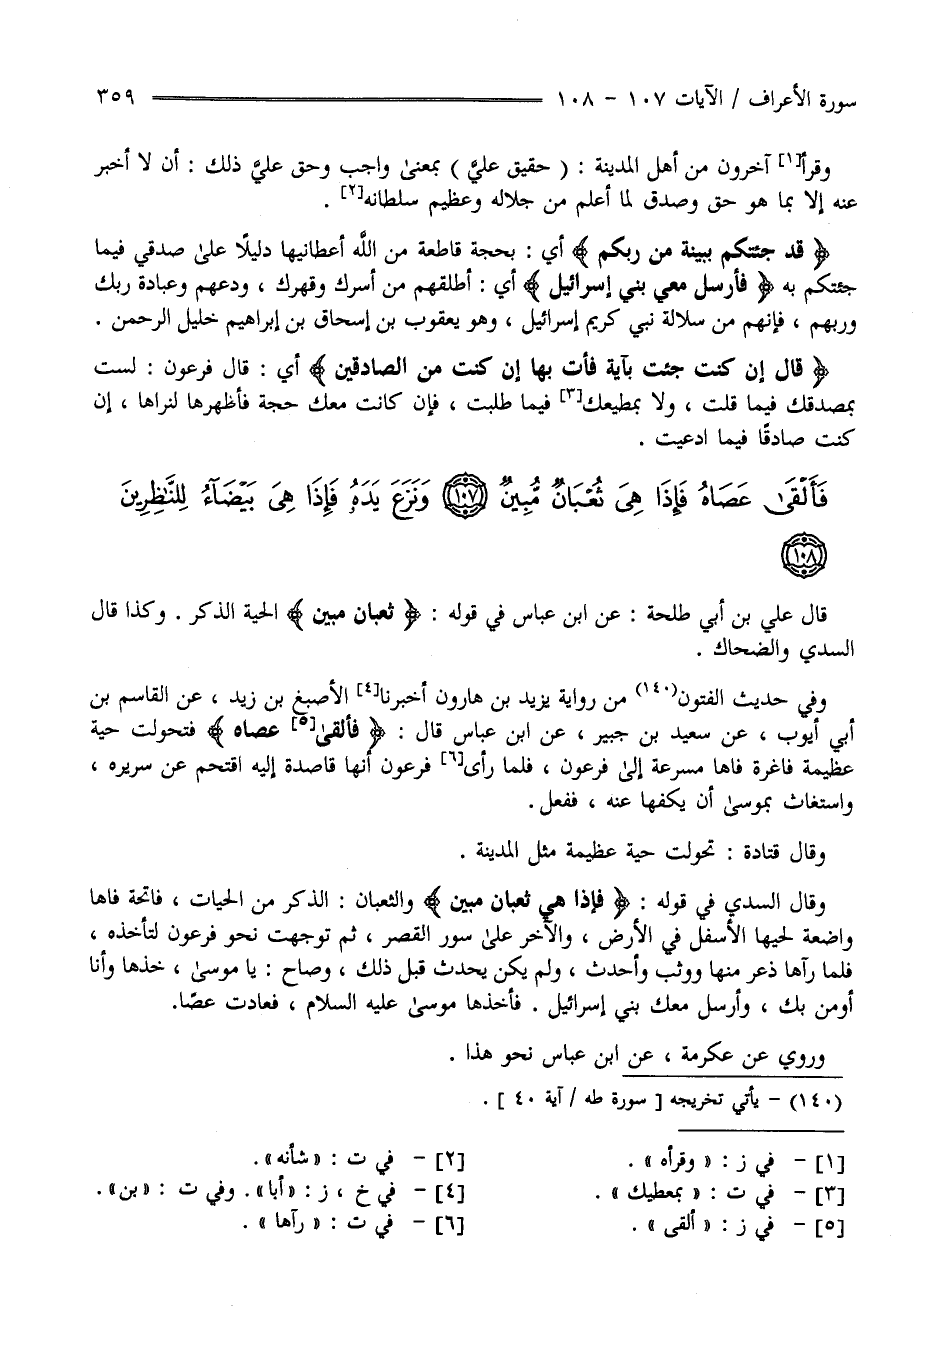 سورة الأعراف / الآيات ١٠٧ - ١٠٨ ٣٥٩
وقرأ[١] آخرون من أهل المدينة : ( حقيق عليَّ ) بمعنىٰ واجب وحق عليَّ ذلك : أن لا أخبر
عنه إلا بما هو حق وصدق لما أعلم من جلاله وعظيم سلطانه[٢] .
﴿ قد جئتكم ببينة من ربكم ﴾ أي : بحجة قاطعة من اللَّه أعطانيها دليلًا علىٰ صدقي فيما
جئتكم به ﴿ فأرسل معي بني إسرائيل ﴾ أي : أطلقهم من أسرك وقهرك ، ودعهم وعبادة ربك
وربهم ، فإنهم من سلالة نبي كريم إسرائيل ، وهو يعقوب بن إسحاق بن إبراهيم خليل الرحمن .
﴿ قال إن كنت جئت بآية فأت بها إن كنت من الصادقين ﴾ أي : قال فرعون : لست
بمصدقك فيما قلت ، ولا بمطيعك[٣] فيما طلبت ، فإن كانت معك حجة فأظهرها لنراها ، إن
كنت صادقًا فيما ادعيت .
فَأَلْقَىٰ عَصَاهُ فَإِذَا هِىَ ثُعْبَانٌ مُّبِينٌ ١٠٧ وَنَزَعَ يَدَهُۥ فَإِذَا هِىَ بَيْضَآءُ لِلنَّٰظِرِينَ
١٠٨
قال علي بن أبي طلحة : عن ابن عباس في قوله : ﴿ ثعبان مبين ﴾ الحية الذكر . وكذا قال
السدي والضحاك .
وفي حديث الفتون(١٤٠) من رواية يزيد بن هارون أخبرنا[٤] الأصبغ بن زيد ، عن القاسم بن
أبي أيوب ، عن سعيد بن جبير ، عن ابن عباس قال : ﴿ فألقىٰ[٥] عصاه ﴾ فتحولت حية
عظيمة فاغرة فاها مسرعة إلىٰ فرعون ، فلما رأى[٦] فرعون أنها قاصدة إليه اقتحم عن سريره ،
واستغاث بموسىٰ أن يكفها عنه ، ففعل.
وقال قتادة : تحولت حية عظيمة مثل المدينة .
وقال السدي في قوله : ﴿ فإذا هي ثعبان مبين ﴾ والثعبان : الذكر من الحيات ، فاتحة فاها
واضعة لحيها الأسفل في الأرض ، والآخر علىٰ سور القصر ، ثم توجهت نحو فرعون لتأخذه ،
فلما رآها ذعر منها ووثب وأحدث ، ولم يكن يحدث قبل ذلك ، وصاح : يا موسىٰ ، خذها وأنا
أومن بك ، وأرسل معك بني إسرائيل . فأخذها موسىٰ عليه السلام ، فعادت عصًا.
وروي عن عكرمة ، عن ابن عباس نحو هذا .
(١٤٠) - يأتي تخريجه [ سورة طه / آية ٤٠ ] .
[١] - في ز : « وقرأه » . [٢] - في ت : «شأنه».
[٣] - في ت : « بمعطيك » . [٤] - في خ ، ز : «أبا». وفي ت : «بن».
[٥] - في ز : « ألقى » . [٦] - في ت : « رآها » .